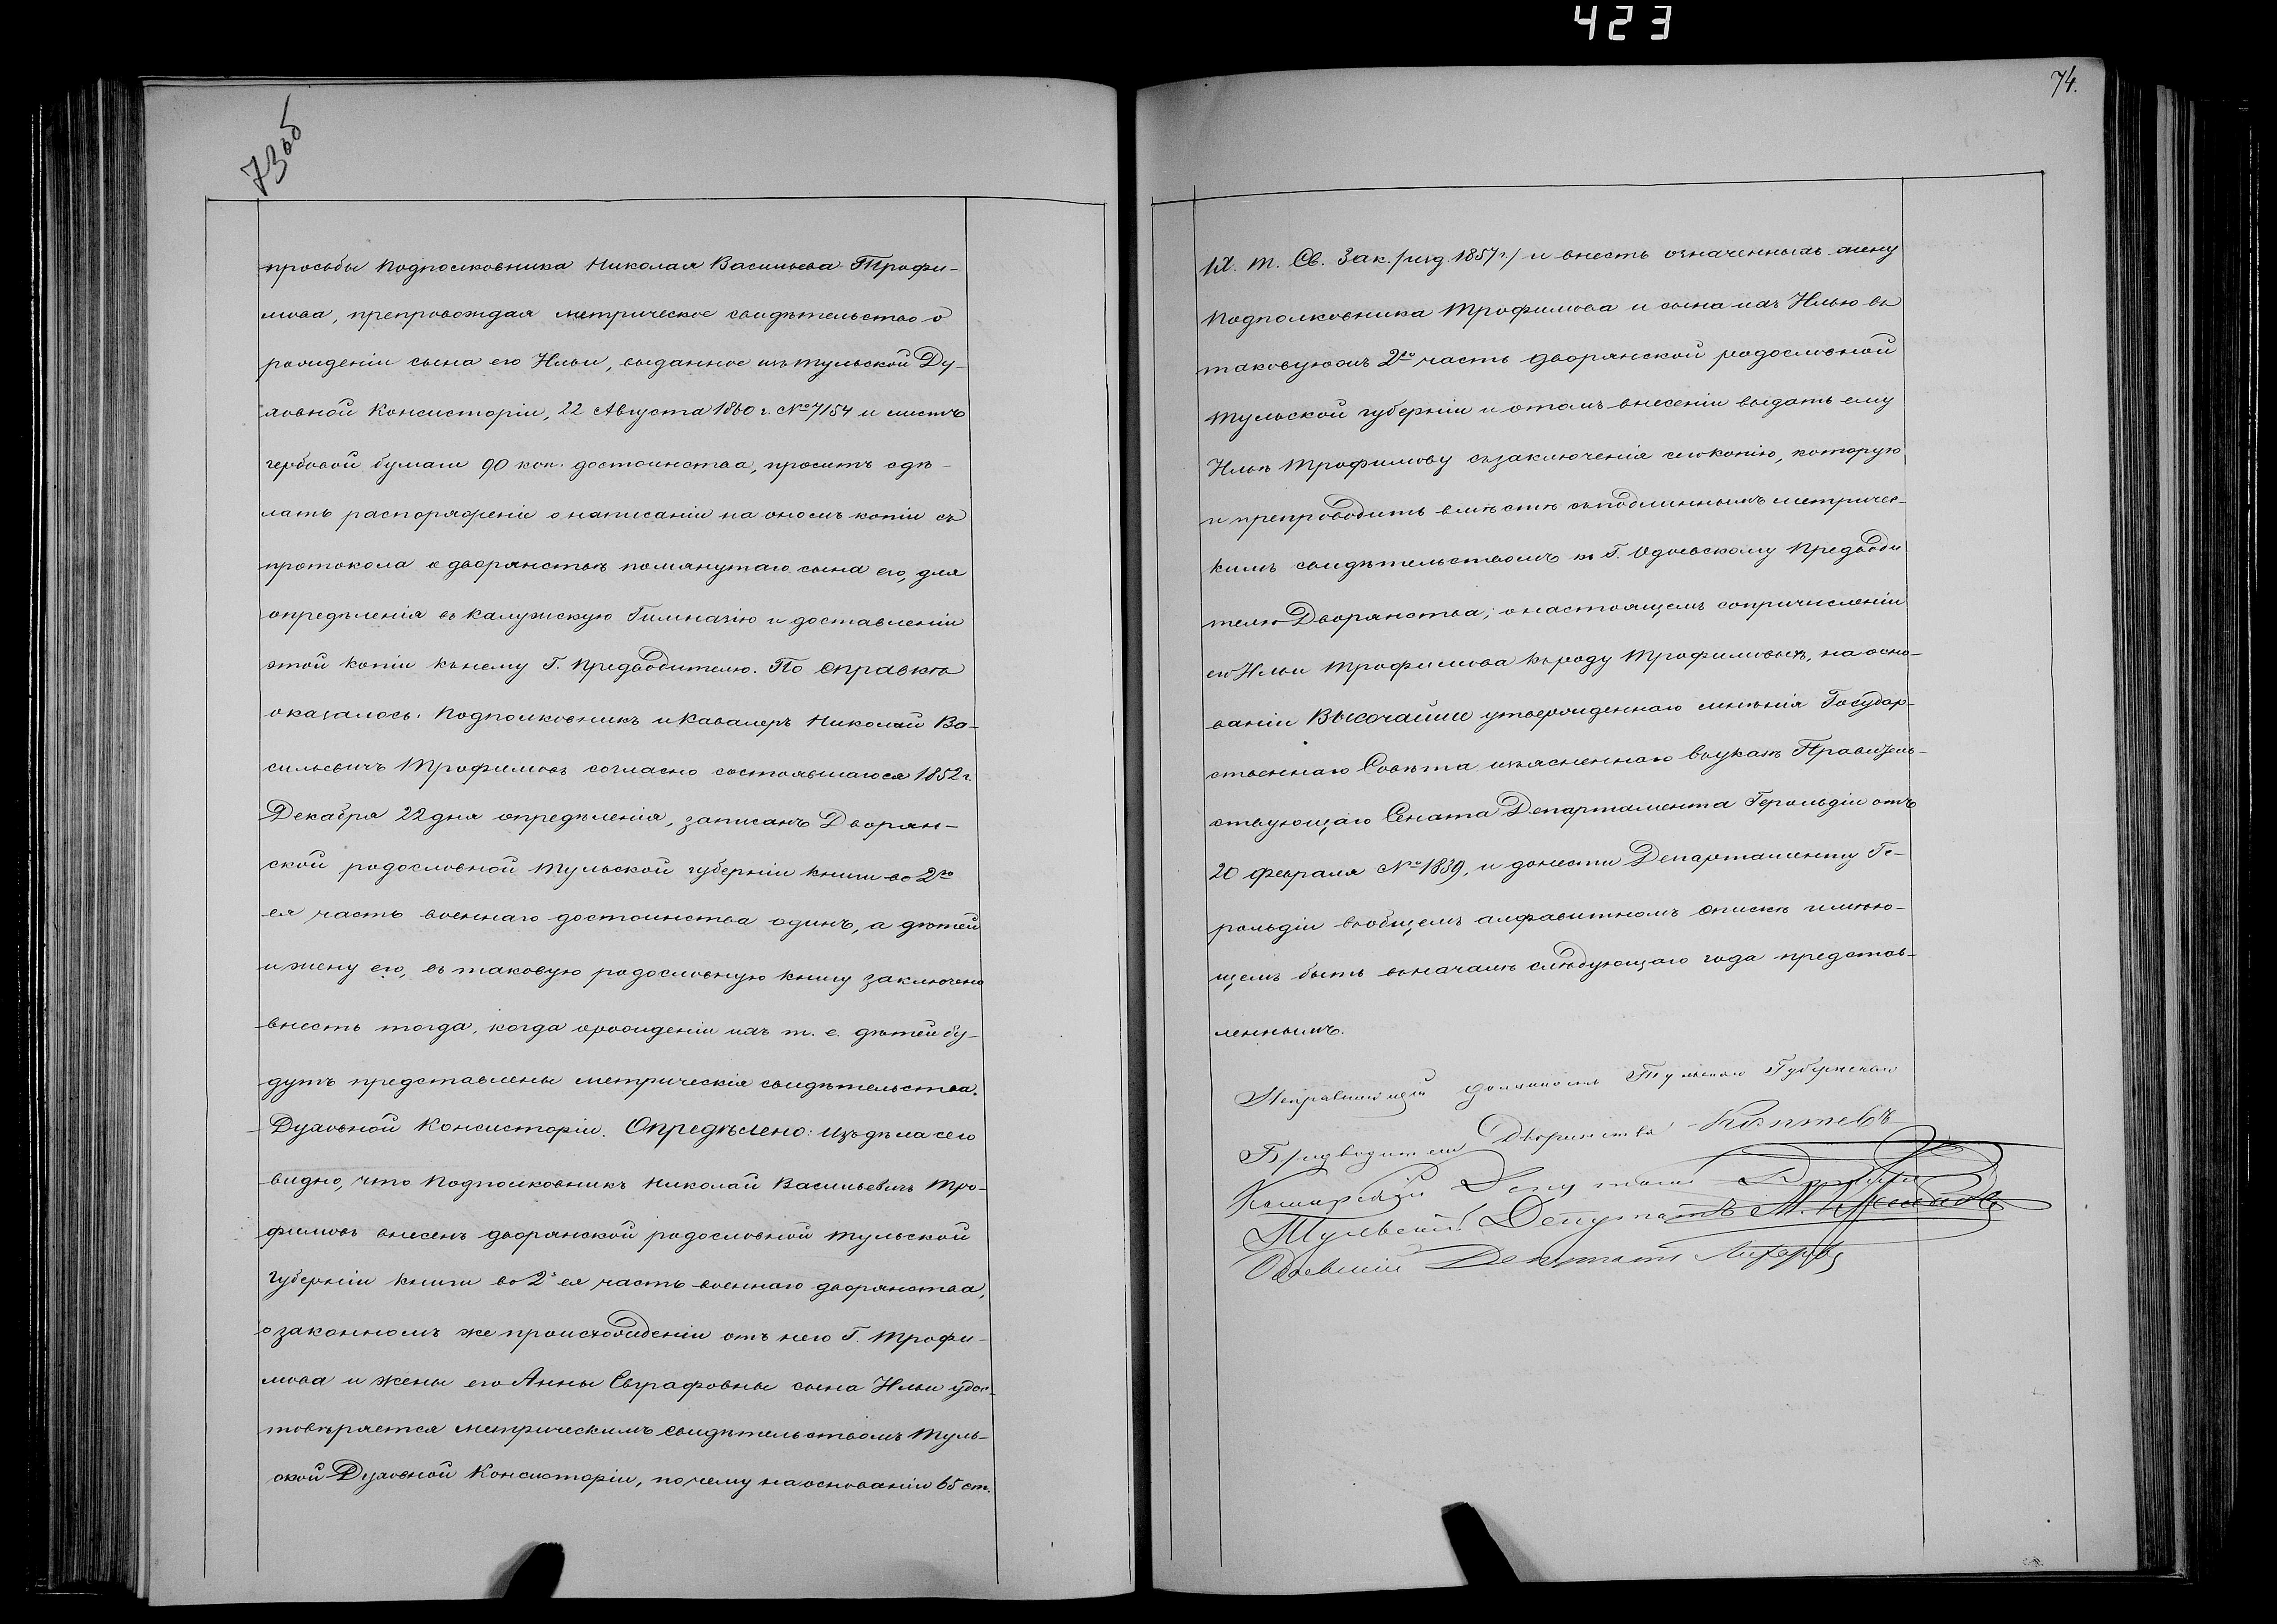 423
73об
просьбы Подполковника Николая Васильева Трофи-
мова, препровождая метрическое свидѣтельство о
рожденіи сына его Ильи, выданное изъ Тульской Ду-
ховной Консисторіи, 22 Августа 1860 г. № 7154 и листъ
гербовой бумаги 90 коп. достоинства, проситъ сдѣ-
лать распоряженіе о написаніи на ономъ копіи съ
протокола о дворянствѣ помянутаго сына его, для
опредѣленія въ Калужскую Гимназію и доставленіи
этой копіи къ нему Г. Предводителю. По справкѣ
оказалось: Подполковникъ и Кавалеръ Николай Ва-
сильевичъ Трофимовъ согласно состоявшагося 1852 г.
Декабря 22 дня опредѣленія, записанъ Дворян-
ской родословной Тульской губерніи книги во 2ю
ея часть военнаго достоинства одинъ, а дѣтей
и жену его, въ таковую родословную книгу заключено
внесть тогда, когда о рожденіи ихъ т. е. дѣтей бу-
дутъ представлены метрическія свидѣтельства
Духовной Консисторіи. Опредѣлено: Изъ дѣла сего
видно, что Подполковникъ Николай Васильевичъ Тро-
фимовъ внесенъ дворянской родословной Тульской
губерніи книги во 2ю ея часть военнаго дворянства,
о законномъ же происхожденіи отъ него Г. Трофи-
мова и жены его Анны Евграфовны сына Ильи удос-
товѣряется метрическимъ свидѣтельствомъ Туль-
ской Духовной Консисторіи, по чему на основаніи 65 ст.
74.
IX. т. Св. Зак. /изд. 1857 г./ и внесть означенныхъ жену
Подполковника Трофимова и сына ихъ Илью въ
таковуюжъ 2ю часть дворянской родословной
Тульской губерніи и о томъ внесеніи выдать ему
Ильѣ Трофимову съ заключенія сего копію, которую
и препроводить вмѣстѣ съ подлиннымъ метричес-
кимъ свидѣтельствомъ къ Г. Одоевскому Предводи
телю Дворянства; о настоящемъ сопричисленіи
его Ильи Трофимова къ роду Трофимовыхъ, на осно-
ваніи Высочайше утвержденнаго мнѣнія Государ-
ственнаго Совѣта изъясненнаго въ указѣ Правитель-
ствующаго Сената Департамента Герольдіи отъ
20 февраля № 1839, и донести Департаменту Ге-
рольдіи въ общемъ алфавитномъ спискѣ имѣю-
щемъ быть въ началѣ слѣдующаго года представ-
леннымъ.
Исправляющій должность Тульскаго Губернскаго
Предводителя Дворянства
Каширскій Депутатъ
Тульскій Депутатъ М.
Одоевскій Депутатъ Лихаревъ